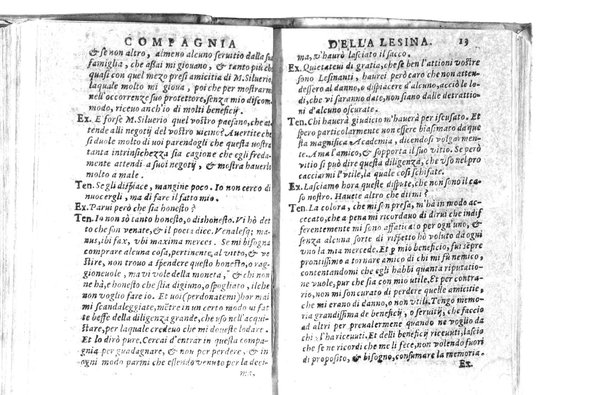 COMPAGNIA
& se non altro, almeno alcuno seruitio dalla sua
famiglia, che assai mi giouano, & tanto più che
quasi con quel mezo presi amicitia di M. Siluerio,
laquale molto mi gioua, poi che per mostrarmi
nell'occorrenze suo protettore, senza mio discom
modo, riceuo anch'io di molti beneficij.
Ex. E forse M. Siluerio quel vostro paesano, che at
tende alli negotij del vostro uicino? Auertite che
si duole molto di uoi parendogli che questa uostra
tanta intrinsichezza sia cagione che egli freda-
mente attendi a' suoi negotij, & mostra hauerlo
molto a male.
Ten. Se gli dispiace, mangine poco. Io non cerco di
nuocergli, ma di fare il fatto mio.
Ex. Parui però che sia honesto?
Ten. Io non sò tanto honesto, o dishonesto. Vi hò det
to che son venate, & il poeta dice. Venalesq; ma-
nus, ibi fax, vbi maxima merces. Se mi bisogna
comprare alcuna cosa, pertinente, al vitto, & ve
stire, non trouo a spendere questo honesto, o rag
gioneuole, ma vi vole della moneta, & chi non
ne hà, e honesto che stia digiuno, o spogliato, il che
non voglio fare io. Et uoi (perdonatemi) hor mai
mi scandaleggiate, mètre in un certo modo ui fat
te beffe della diligenza grande, che uso nell'acqui
stare, per laquale credeuo che mi doueste lodare.
Et lo dirò pure. Cercai d'entrar in questa compa-
gnia per guadagnare, & non per perdere, & in
ogni modo parmi che essendo venuto per la deci-
ma,
DELLA LESINA. 13
ma, v'haurò lasciato il sacco.
Ex. Quietateui di gratia, che se ben l'attioni vostre
sono Lesinanti, haurei però caro che non atten-
dessero al danno, o dispiacere d'alcuno, acciò le lo
di, che vi saranno date, non siano dalle detrattio
ni d'alcuno oscurate.
Ten. Chi haurà giudicio m'haurà per iscusato. Et
spero particolarmente non essere biasimato da que
sta magnifica Academia, dicendosi volgarmen-
te. Ama l'amico, & sopporta il suo vitio. Se però
vitio si può dire questa diligenza, che vso nel pro
cacciarmi l'vtile, la quale cosi schifate.
Ex. Lasciamo hora queste dispute, che non sono il ca
so nostro. Hauete altro che dirmi?
Ten. La colora, che mi son presa, m'hà in modo ac-
cecato, che a pena mi ricordauo di dirui che indif
ferentemente mi sono affaticato per ogn'vno, &
senza alcuna sorte di rispetto hò voluto da ogni
vno la mia mercede. Et per mio beneficio, fui sempre
prontissimo a tornare amico di chi mi fu nemico,
contentandomi che egli habbi quanta riputatio-
ne vuole, pur che sia con mio utile, Et per contra-
rio, non mi son curato di perdere quelle amicitie,
che mi erano di danno, o non utili. Tengo memo-
ria grandissima de beneficij, o seruitij, che faccio
ad altri per preualermene quando ne veggio da
chi l'hà riceuuti. Et delli beneficij riceuuti, lascio
che se ne ricordi che me li fece, non volendo fuori
di proposito, & bisogno, consumare la memoria.
Ex.